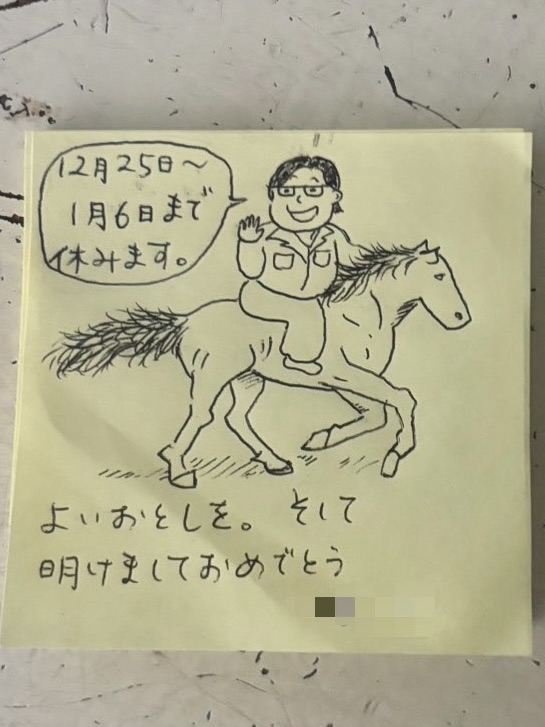 12月25日～
1月6日まで
休みます。
よいおとしを。 そして
明けましておめでとう